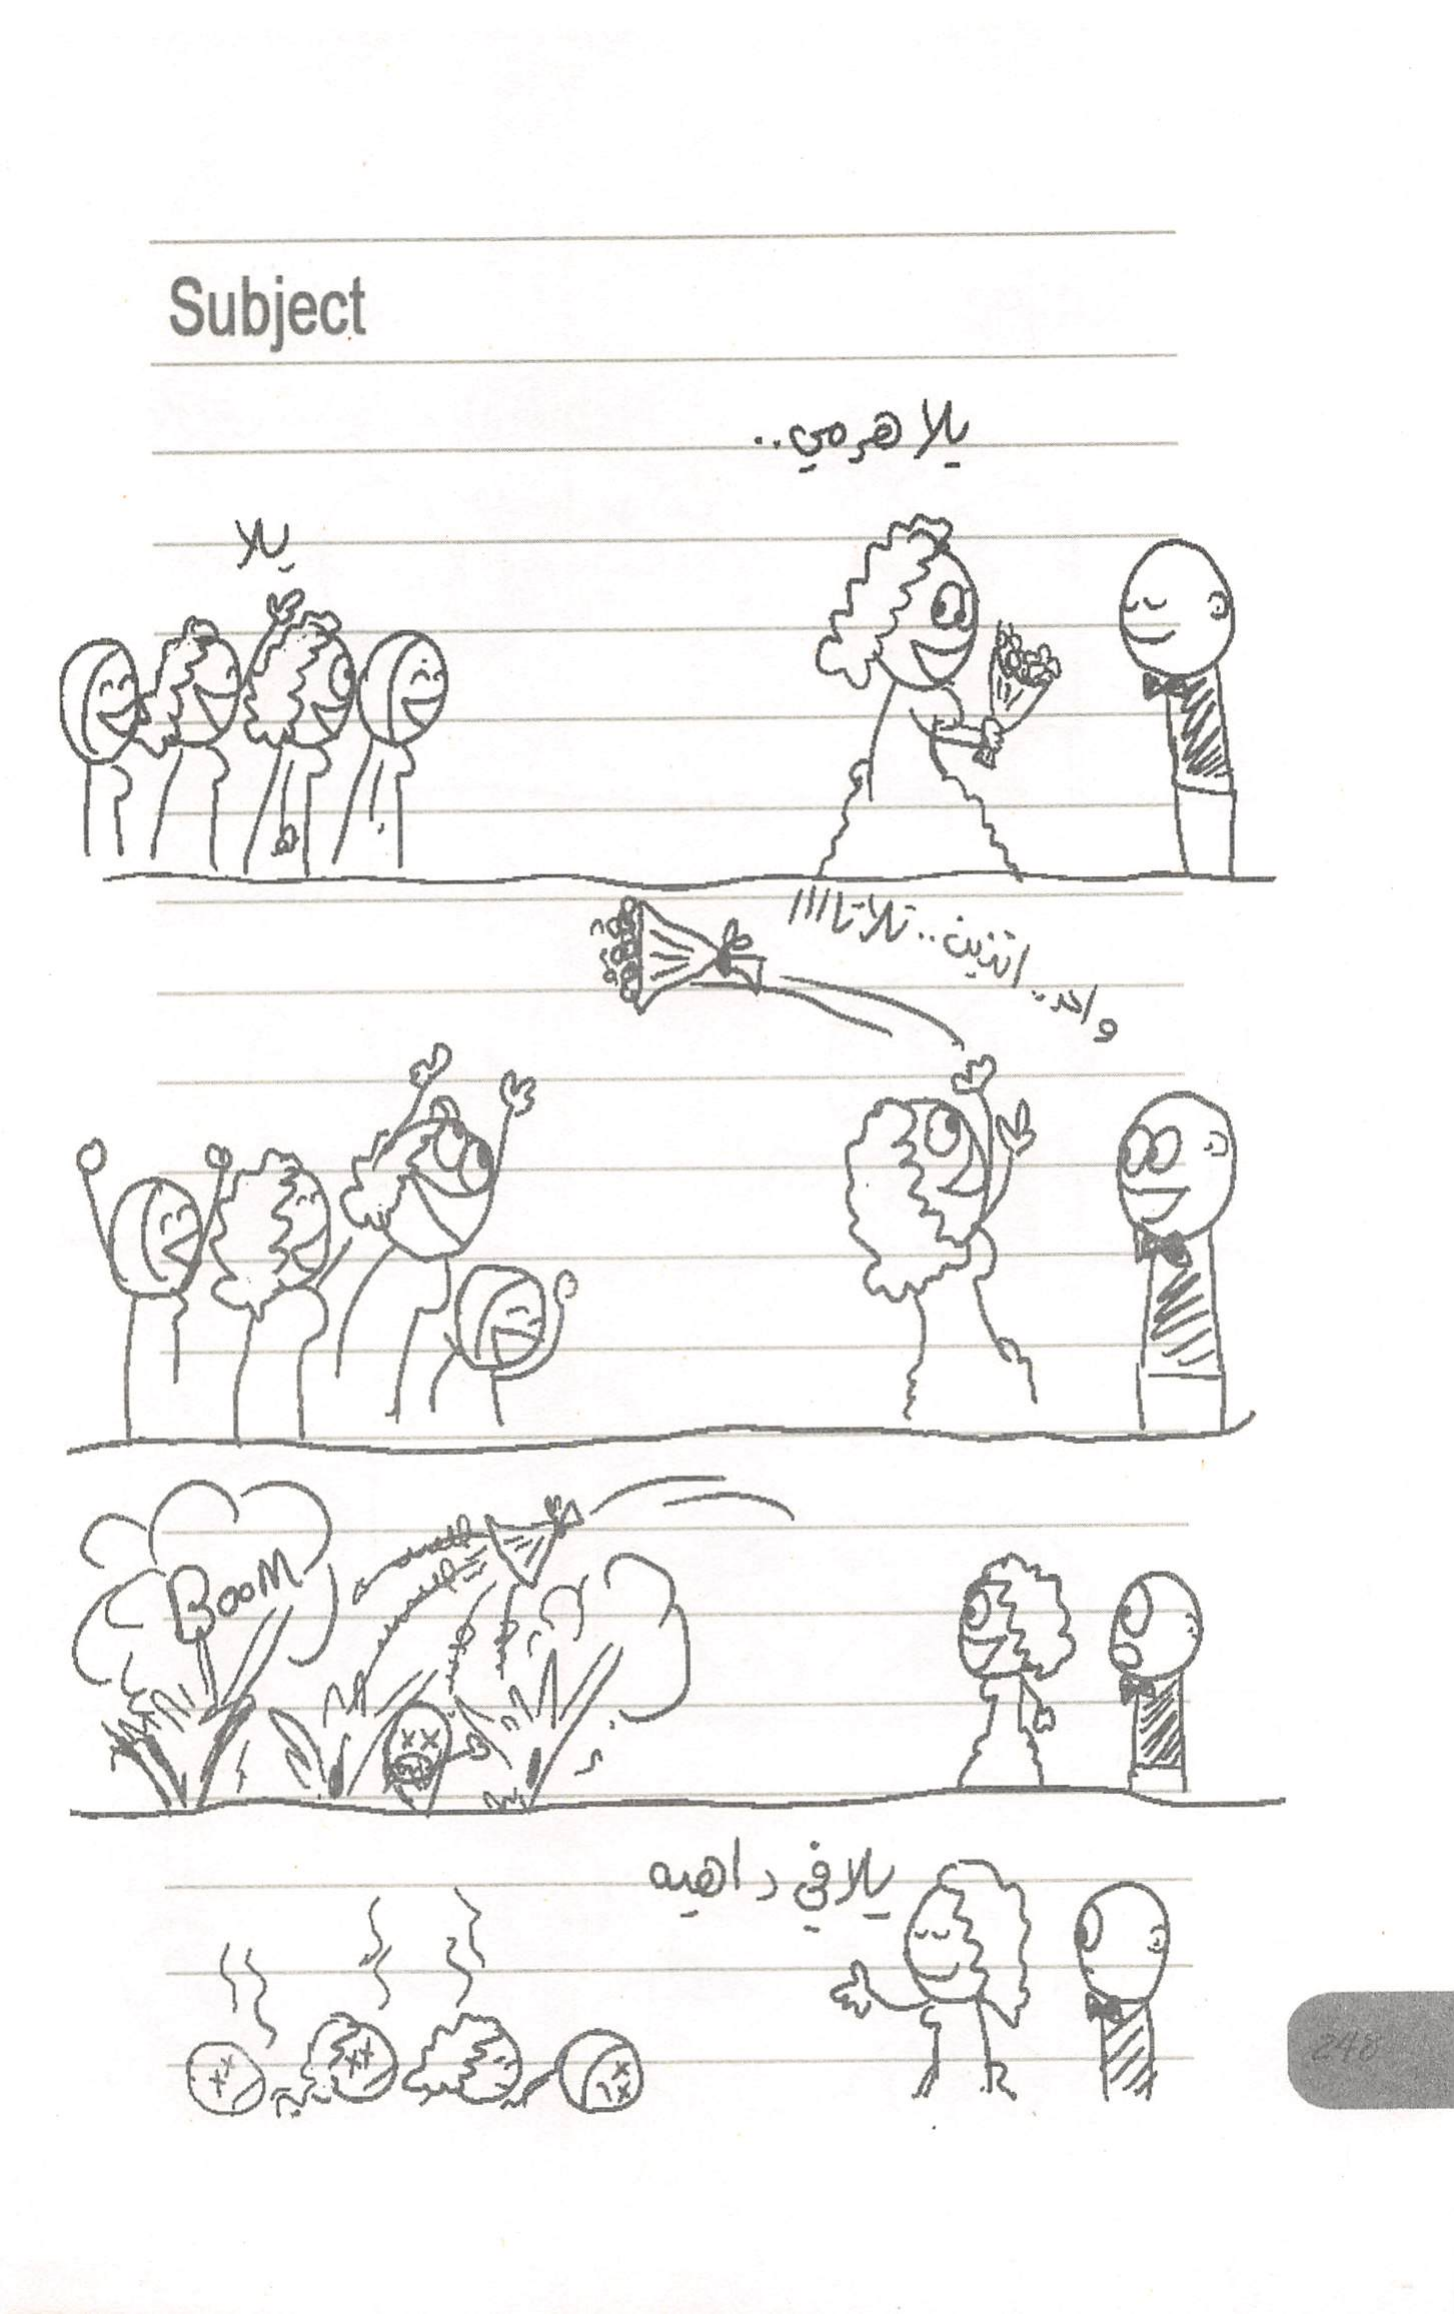 Subject
يلا هرمي..
يلا
واحد.. اتنين.. تلاتااااا
BOOM
يلا في داهيه
248